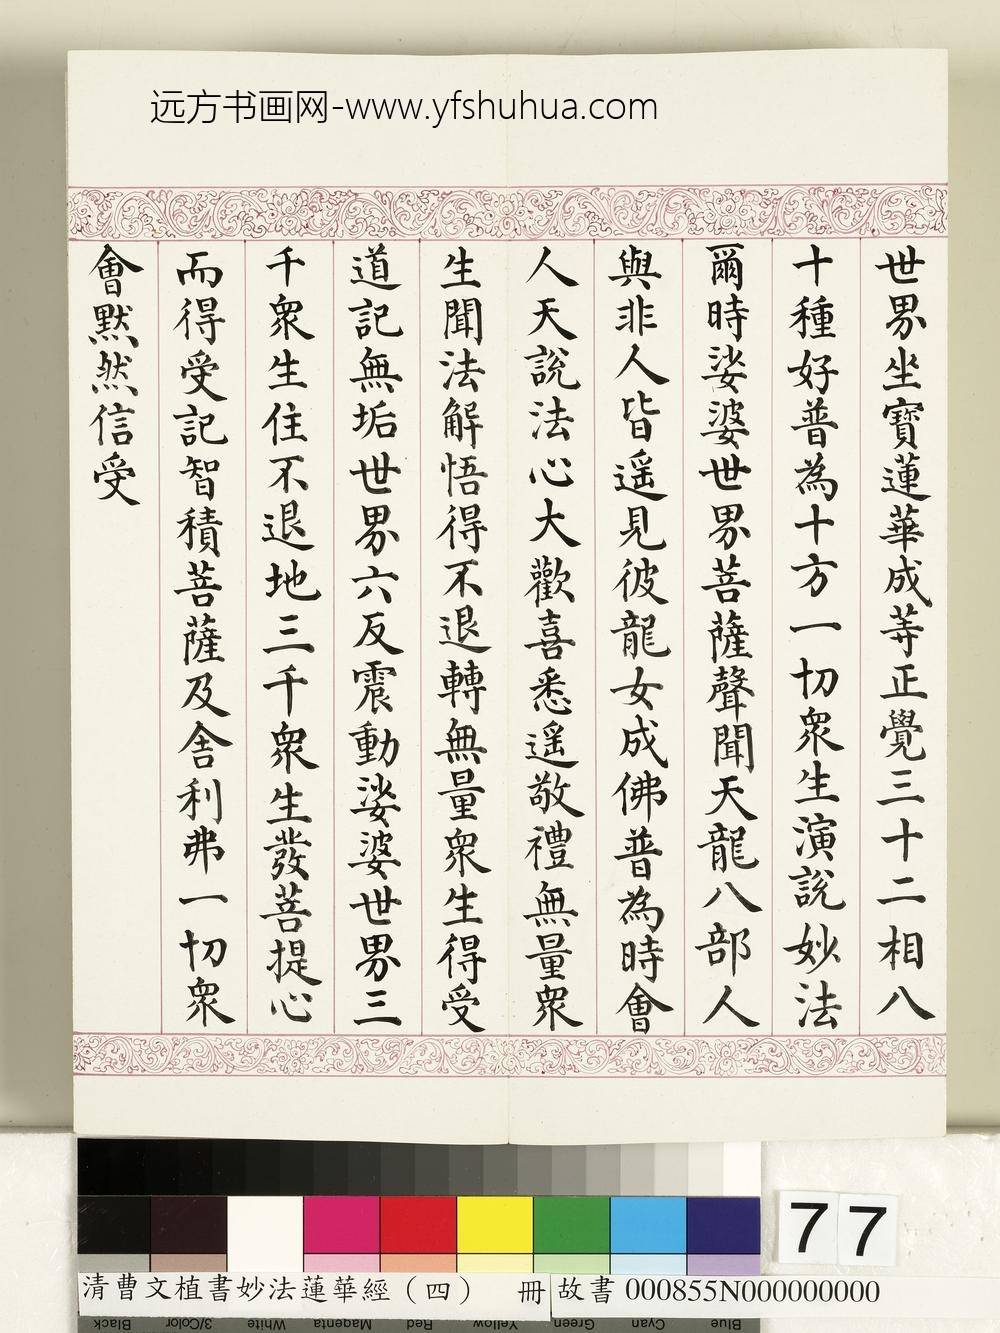 远方书画网-www.yfshuhua.com
世界坐寶蓮華成等正覺三十二相八
十種好普為十方一切眾生演說妙法
爾時娑婆世界菩薩聲聞天龍八部人
與非人皆遥見彼龍女成佛普為時會
人天說法心大歡喜悉遥敬禮無量眾
生聞法解悟得不退轉無量眾生得受
道記無垢世界六反震動娑婆世界三
千眾生住不退地三千眾生發菩提心
而得受記智積菩薩及舍利弗一切眾
會默然信受
77
清曹文植書妙法蓮華經（四） 冊
故書 000855N000000000
Black 3/Color White Magenta Red Yellow Green Cyan Blue